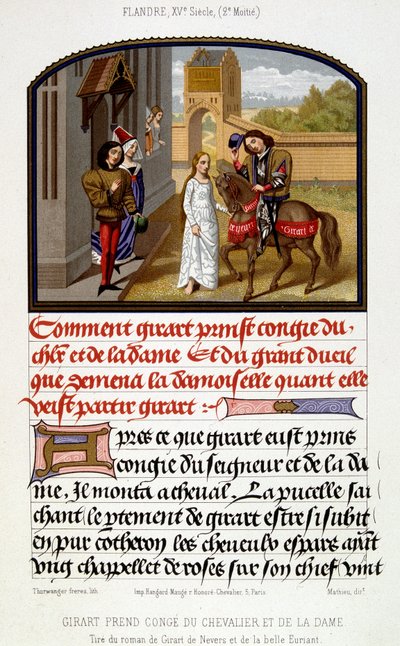 FLANDRE, XVe Siècle, (2e Moitié)
de neuers
Girart de
Comment girart prinst congie du,
chlr et de la dame Et du grant dueil
que demena la damoiselle quant elle
veist partir girart :~
Apres ce que girart eust prins
congie du seigneur et de la da
me, Il monta a cheval, La pucelle sai
chant le ptement de girart estre si subit
en pur cotheron les cheveulx espars ayāt
ung chappellet de roses sur son chief vint
Thurwanger frères, lith.
Imp. Hangard Maugé r. Honoré-Chevalier, 5, Paris.
Mathieu, dirt.
GIRART PREND CONGÉ DU CHEVALIER ET DE LA DAME.
Tiré du roman de Girart de Nevers et de la belle Euriant.